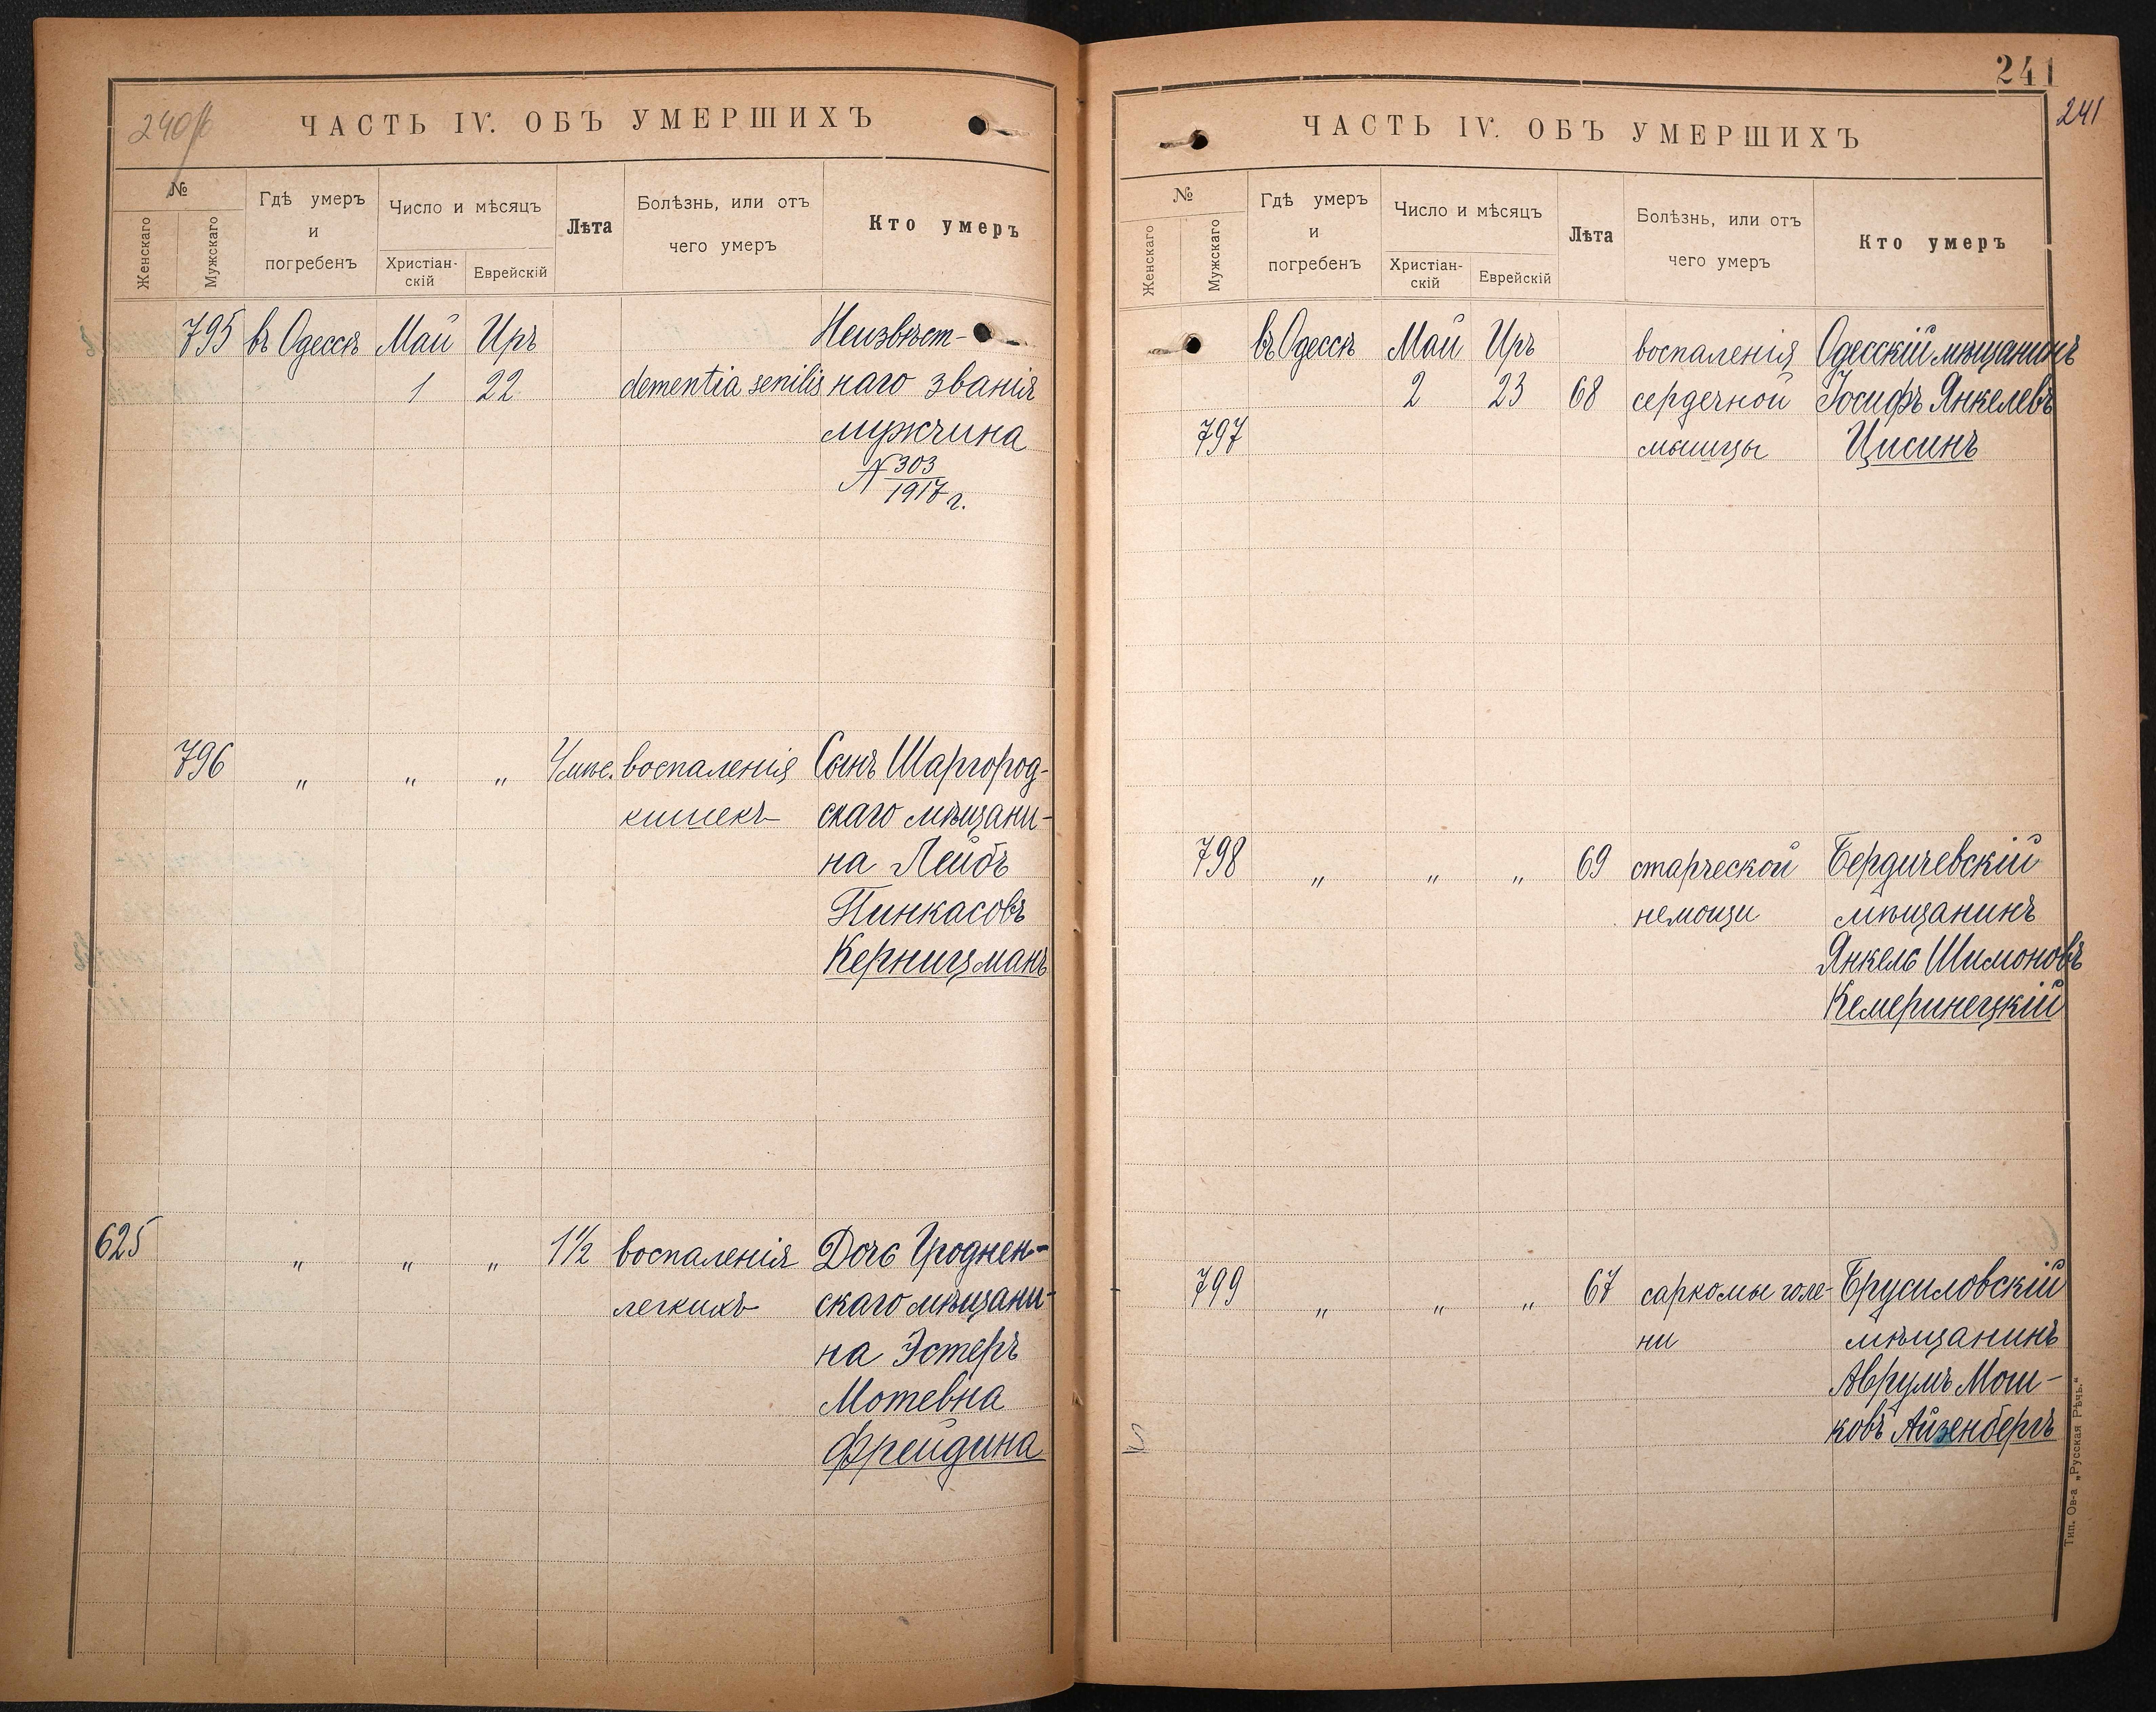 240/б
ЧАСТЬ IV. ОБЪ УМЕРШИХЪ
№
Женскаго
Мужскаго
Гдѣ умеръ
и
погребенъ
Число и мѣсяцъ
Христіан-
скій
Еврейскій
Лѣта
Болѣзнь, или отъ
чего умеръ
Кто умеръ
795 въ Одессѣ Май Иръ Неизвѣст-
1 22 dementia senilis наго званія
мужчина
N 303/1917 г.
796 " " " мѣс. воспаленія Сынъ Шаргород-
кишекъ скаго мѣщани-
на Лейбъ
Пинкасовъ
Керницманъ
625 " " " 1½ воспаленія Дочь Гроднен-
легкихъ скаго мѣщани-
на Эстеръ
Мотевна
Фрейдина
241
241
ЧАСТЬ IV. ОБЪ УМЕРШИХЪ
№
Женскаго
Мужскаго
Гдѣ умеръ
и
погребенъ
Число и мѣсяцъ
Христіан-
скій
Еврейскій
Лѣта
Болѣзнь, или отъ
чего умеръ
Кто умеръ
въ Одессѣ Май Иръ воспаленія Одесскій мѣщанинъ
2 23 68 сердечной Іосифъ Янкелевъ
797 мышцы Цисинъ
798 " " " 69 старческой Бердичевскій
немощи мѣщанинъ
Янкель Шимоновъ
Кемеринецкій
799 " " " 67 саркомы голе- Брусиловскій
ни мѣщанинъ
Аврумъ Мош-
ковъ Айзенбергъ
Тип. Ов-а „Русская Рѣчь.“